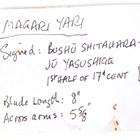 MAGARI YARI
Signed: BUSHŪ SHITAHARA-
JŪ YASUSHIGE
1st HALF OF 17th CENT
Blade Length: 8"
Across arms: 5